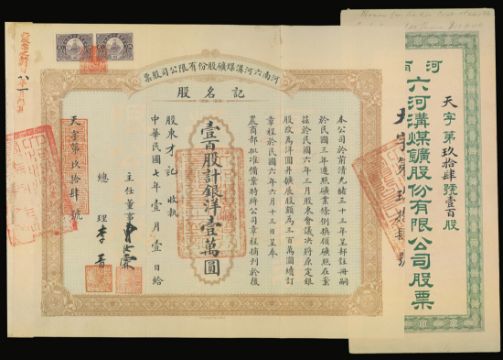 河南六河溝煤礦股份有限公司股票
記名股
本公司於前清光緒三十三年呈部註冊嗣
於民國三年遵照礦業條例換領礦照在案
茲於民國六年三月股東會議決將原定銀
股改為洋圓并擴充股額為三百萬圓續訂
章程於民國六年六月十三日呈奉
農商部批准備案特將公司章程摘列於後
壹百股計銀洋壹萬圓
股東才記 收執
中華民國七年壹月壹日給
主任董事
總理 李晋
天字第玖拾肆號
天字第玖拾肆號壹百股
河南六河溝煤礦股份有限公司股票